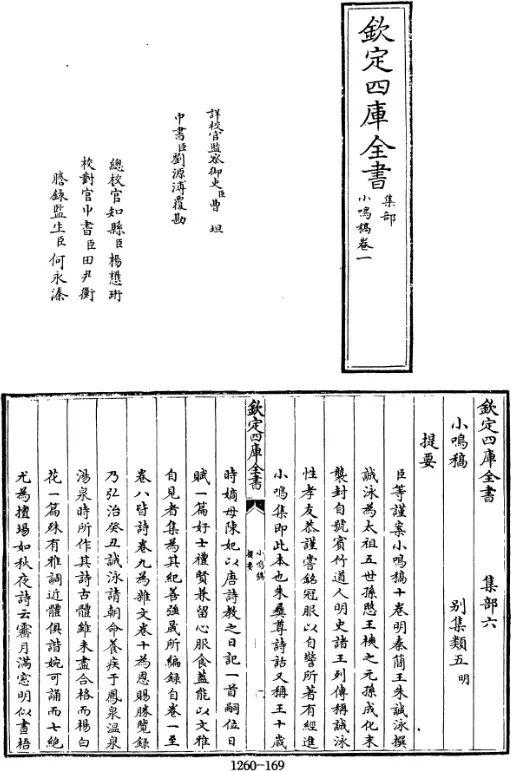 欽定四庫全書
集部
小鳴稿卷一
詳校官監察御史臣曹坦
中書臣劉源溥覆勘
總校官知縣臣楊懋珩
校對官中書臣田尹衡
謄錄監生臣何永溱
欽定四庫全書 集部六
小鳴稿 别集類五明
提要
臣等謹案小鳴稿十卷明秦簡王朱誠泳撰
誠泳為太祖五世孫愍王樉之元孫成化末
襲封自號賓竹道人明史諸王列傳稱誠泳
性孝友恭謹嘗銘冠服以自警所著有經進
小鳴集即此本也朱彝尊詩話又稱王十歲
欽定四庫全書
小鳴稿
提要
一
時嫡母陳妃以唐詩教之日記一首嗣位日
賦一篇好士禮賢兼留心服食蓋能以文雅
自見者集為其紀善強晟所編録自卷一至
卷八皆詩卷九為雜文卷十為恩賜勝覽録
乃弘治癸丑誠泳請朝命養疾于鳳泉温泉
湯泉時所作其詩古體雖未盡合格而楊白
花一篇殊有雅調近體俱諧婉可誦而七絶
尤為擅場如秋夜詩云霽月滿窓明似晝梧
1260-169